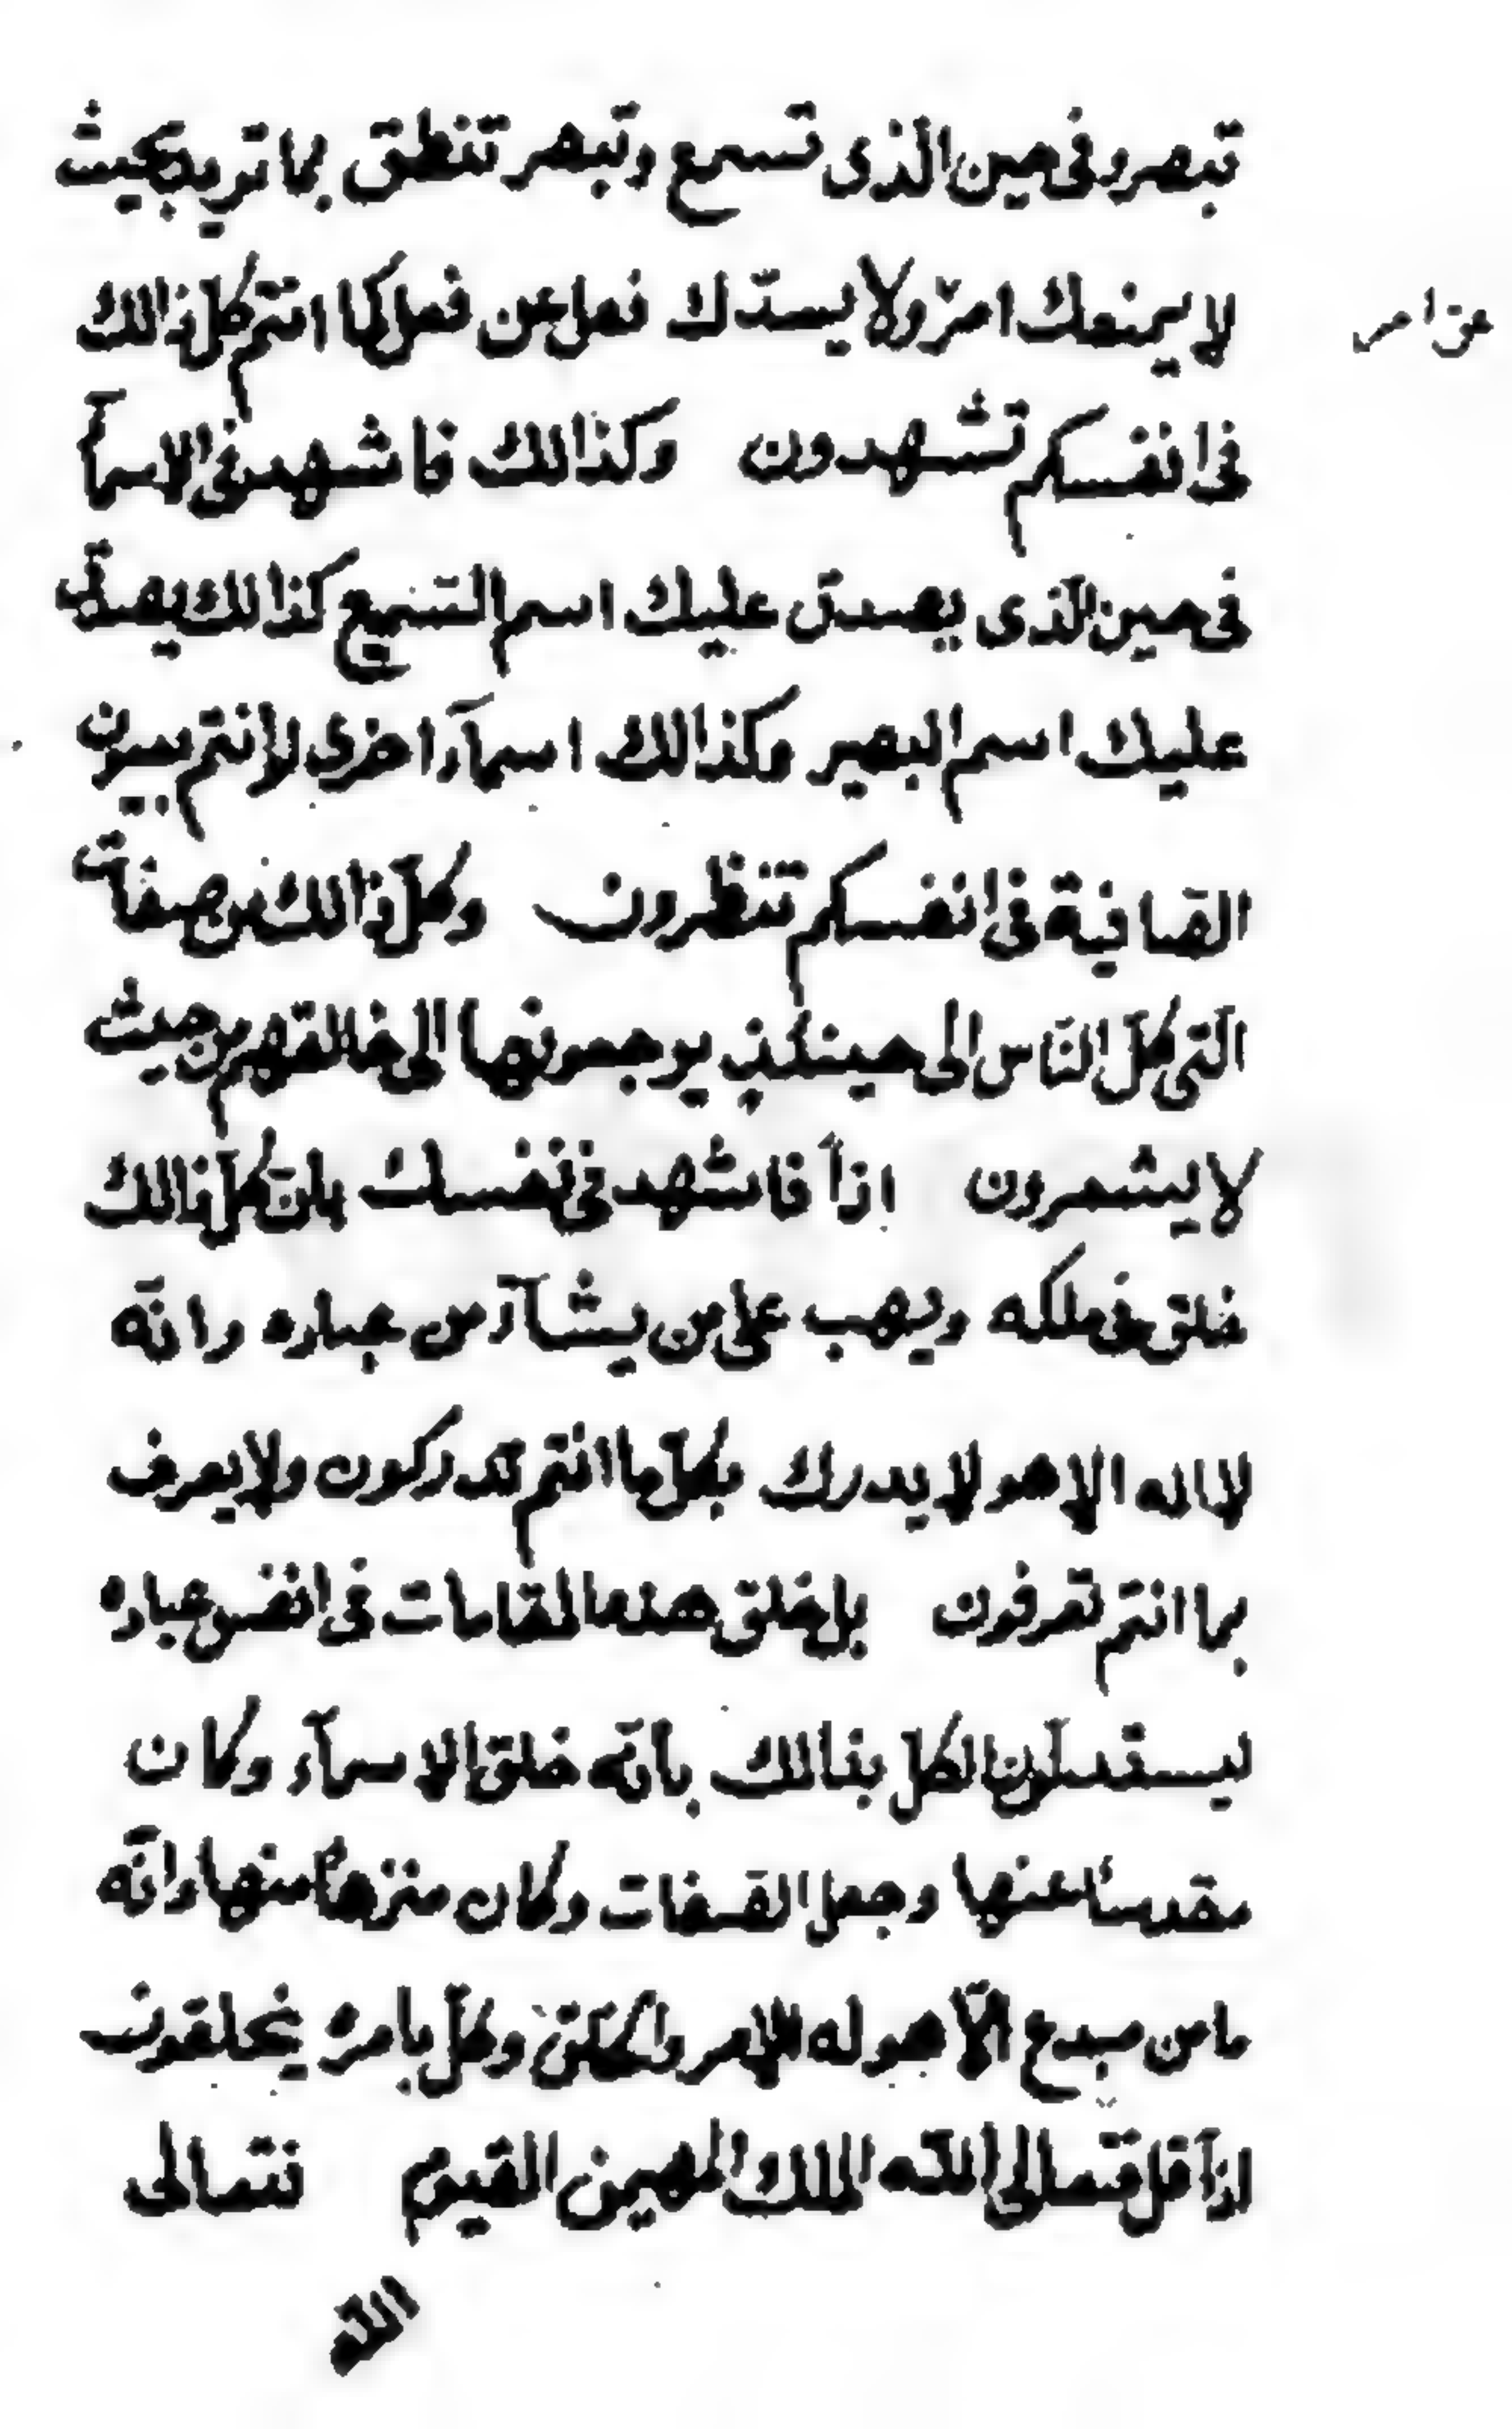 تبصر وفی حین الذی تسمع وتبصر تنطق بما ترید بحیث
لا یمنعك امرٌ ولا یسدّك فعل عن فعل كما انتم كلّ ذالك
عن امر
فی انفسكم تشهدون وكذالك فاشهد فی الاسمآء
فی حین الّذی یصدق علیك اسم السّمیع كذالك یصدق
علیك اسم البصیر وكذالك اسمآء اخری لانتم سرون
الصافیة فی انفسكم تنظرون وكلّ ذالك من صفات
الّتی كلّ النّاس الی حینئذٍ یرجعونها الی خالقهم من حیث
لا یشعرون اذاً فاشهد فی نفسك بانّ كلّ ذالك
خلق فی ملكه ویهب علی من یشآء من عباده وانّه
لا اله الا هو لا یدرك بكلّ ما انتم تدركون ولا یعرف
بما انتم تعرفون بل خلق هذه المقامات فی انفس عباده
لیستدلّون الكلّ بذالك بانّه خلق الاسمآء وكان
مقدساً عنها وجعل الصّفات وكان منزهاً منها وانّه
ما من مبدع الّا هو له الامر والخلق وكلّ بامره یخلقون
اذاً قل فتعالی اللّه الملك المهیمن القیوم فتعالی
اللّه